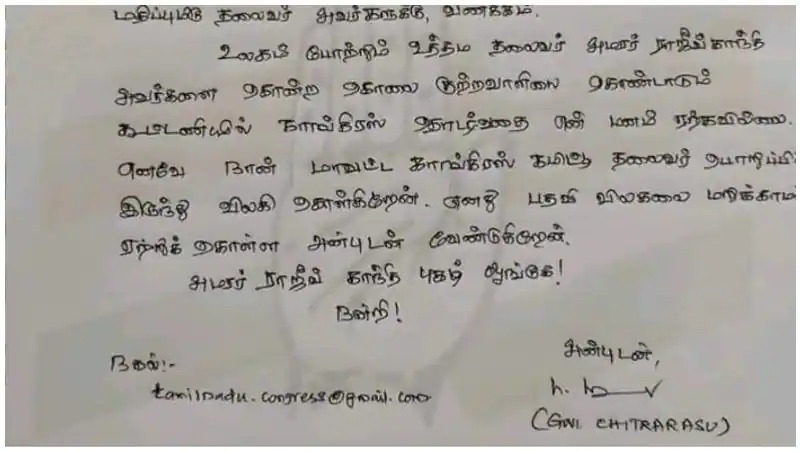 மதிப்புமிகு தலைவர் அவர்களுக்கு, வணக்கம்.
உலகம் போற்றும் உத்தம தலைவர் அமரர் ராஜீவ்காந்தி
அவர்களை கொன்ற கொலை குற்றவாளியை கொண்டாடும்
கூட்டணியில் காங்கிரஸ் தொடர்வதை என் மனம் ஏற்கவில்லை.
எனவே நான் மாவட்ட காங்கிரஸ் கமிட்டி தலைவர் பொறுப்பி
இருந்து விலகி கொள்கிறேன். எனது பதவி விலகலை மறுக்காம
ஏற்றுக் கொள்ள அன்புடன் வேண்டுகிறேன்.
அமரர் ராஜீவ் காந்தி புகழ் ஓங்குக!
நன்றி!
நகல்:-
tamilnadu.congress@gmail.com
அன்புடன்,
(GWL CHITRARASU)